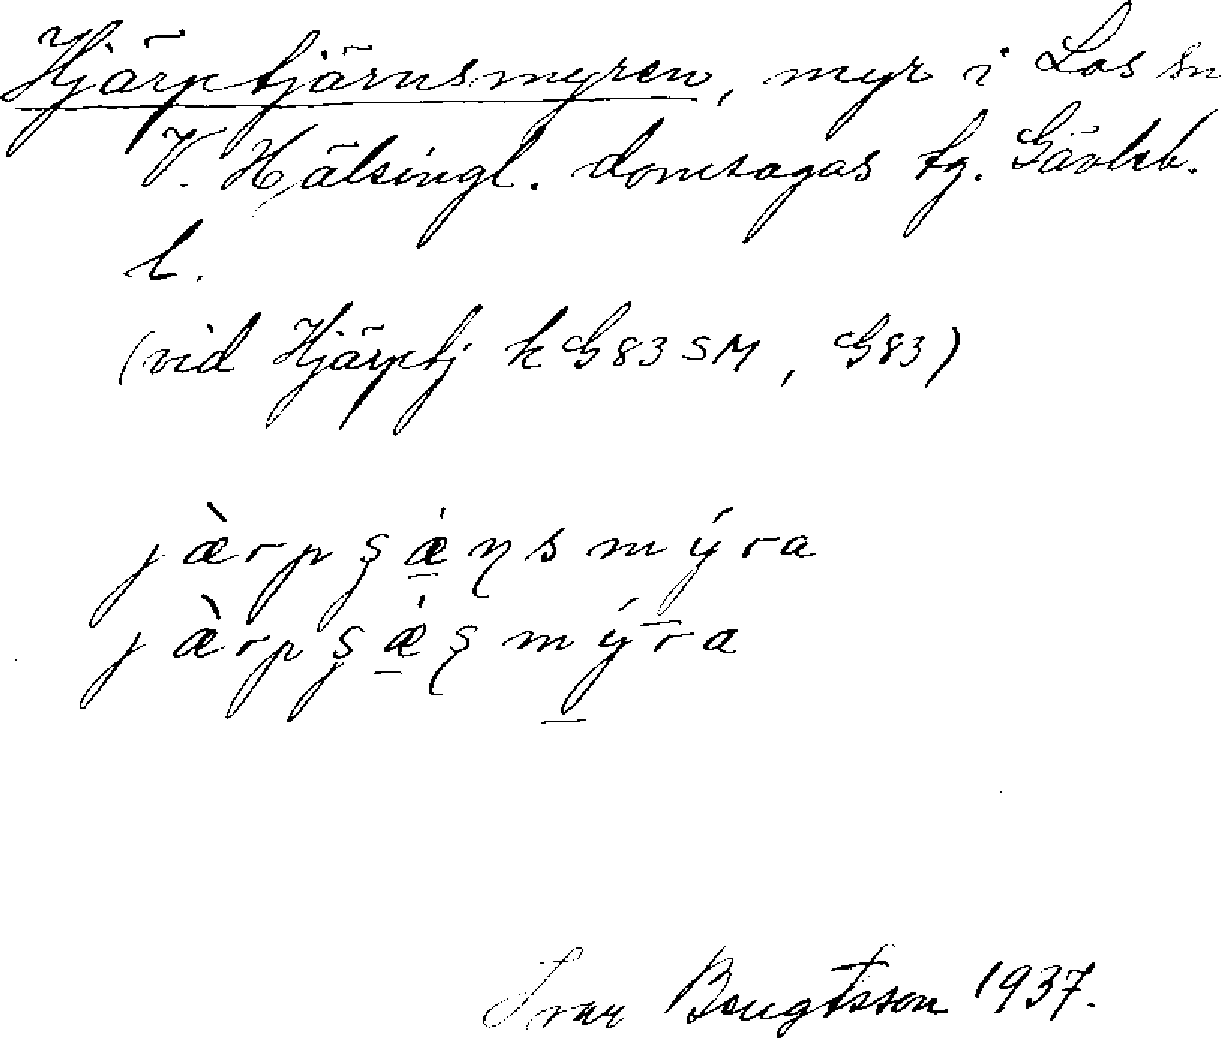 Hjärptjärnsmyren, myr i Los sn
V. Hälsingl. domsagas tg. Gävleb.
l.
(vid Hjärptj k G83 SM, G83)
jàrpʂǽɳsmýra
jàrpʂǽʂmýra
Ivar Bengtsson 1937.